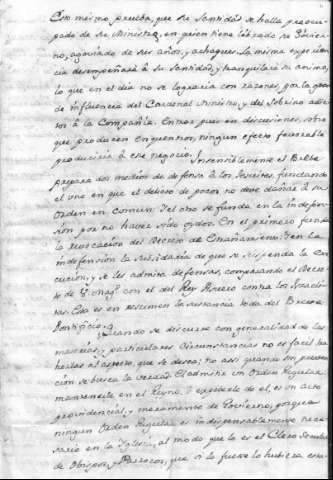 Esto mismo prueba, que su Santidad se halla preocu-
pado de su Ministro, en quien tiene librado su Govier-
no, agoviado de sus años, y achaques. La misma experien-
cia desempeñará à su Santidad, y tranquilizará su animo,
lo que en el dia no se lograria con razones, por la gran-
de influencia del Cardenal Ministro, y del Sobrino adic-
tos à la Compañia. Entrar pues en discusiones, sobre
que producen enquentros, ningun efecto favorable
produciria à este negocio.
Insensiblemente el Breve
prepara dos medios de defensa à los Jesuitas, fundando
el uno en que el delito de pocos no deve dañar à su
Orden en comun. Y el otro se funda en la indefen-
sion por no haver sido oydos. En el primero funda
la revocacion del Decreto de Estrañamiento: Y en la
indefension la solicitud de que se suspenda la exe-
cucion, y se les admita defensas, comparando el Decre-
to de S. Mag. con el del Rey Asuero contra los Israeli-
tas. Esta es en resumen la sustancia toda del Breve
Pontificio.
Quando se discurre con generalidad de las
materias, y particulares circunstancias no es facil
hacerlas al aspecto, que se desea; no asi quando sin preven-
cion se busca la verdad. El admitir un Orden Regular
mantenerle en el Reyno, ò expelerle de el, es un acto
providencial, y meramente de Govierno, porque
ningun Orden Regular es indispensablemente nece-
sario en la Iglesia, al modo que lo es el Clero Secular
de Obispos, y Parrocos, que si lo fuese lo hubiera esta-